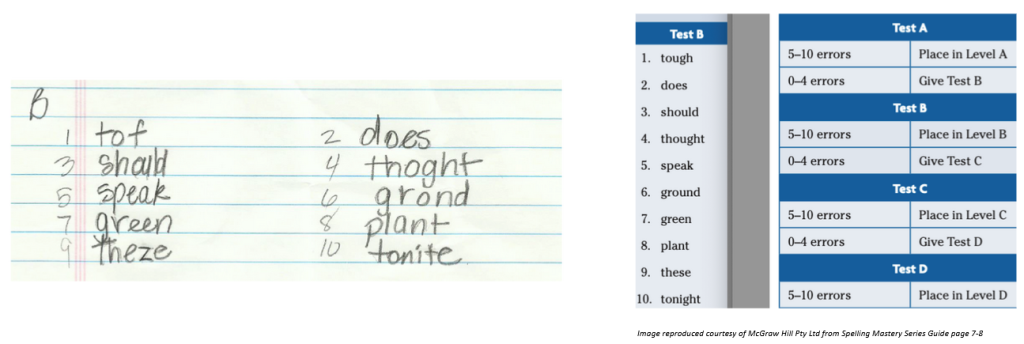 B
1 tof 2 does
3 should 4 thoght
5 speak 6 grond
7 green 8 plant
9 theze 10 tonite
Test B
1. tough
2. does
3. should
4. thought
5. speak
6. ground
7. green
8. plant
9. these
10. tonight
Test A
5–10 errors Place in Level A
0–4 errors Give Test B
Test B
5–10 errors Place in Level B
0–4 errors Give Test C
Test C
5–10 errors Place in Level C
0–4 errors Give Test D
Test D
5–10 errors Place in Level D
Image reproduced courtesy of McGraw Hill Pty Ltd from Spelling Mastery Series Guide page 7-8